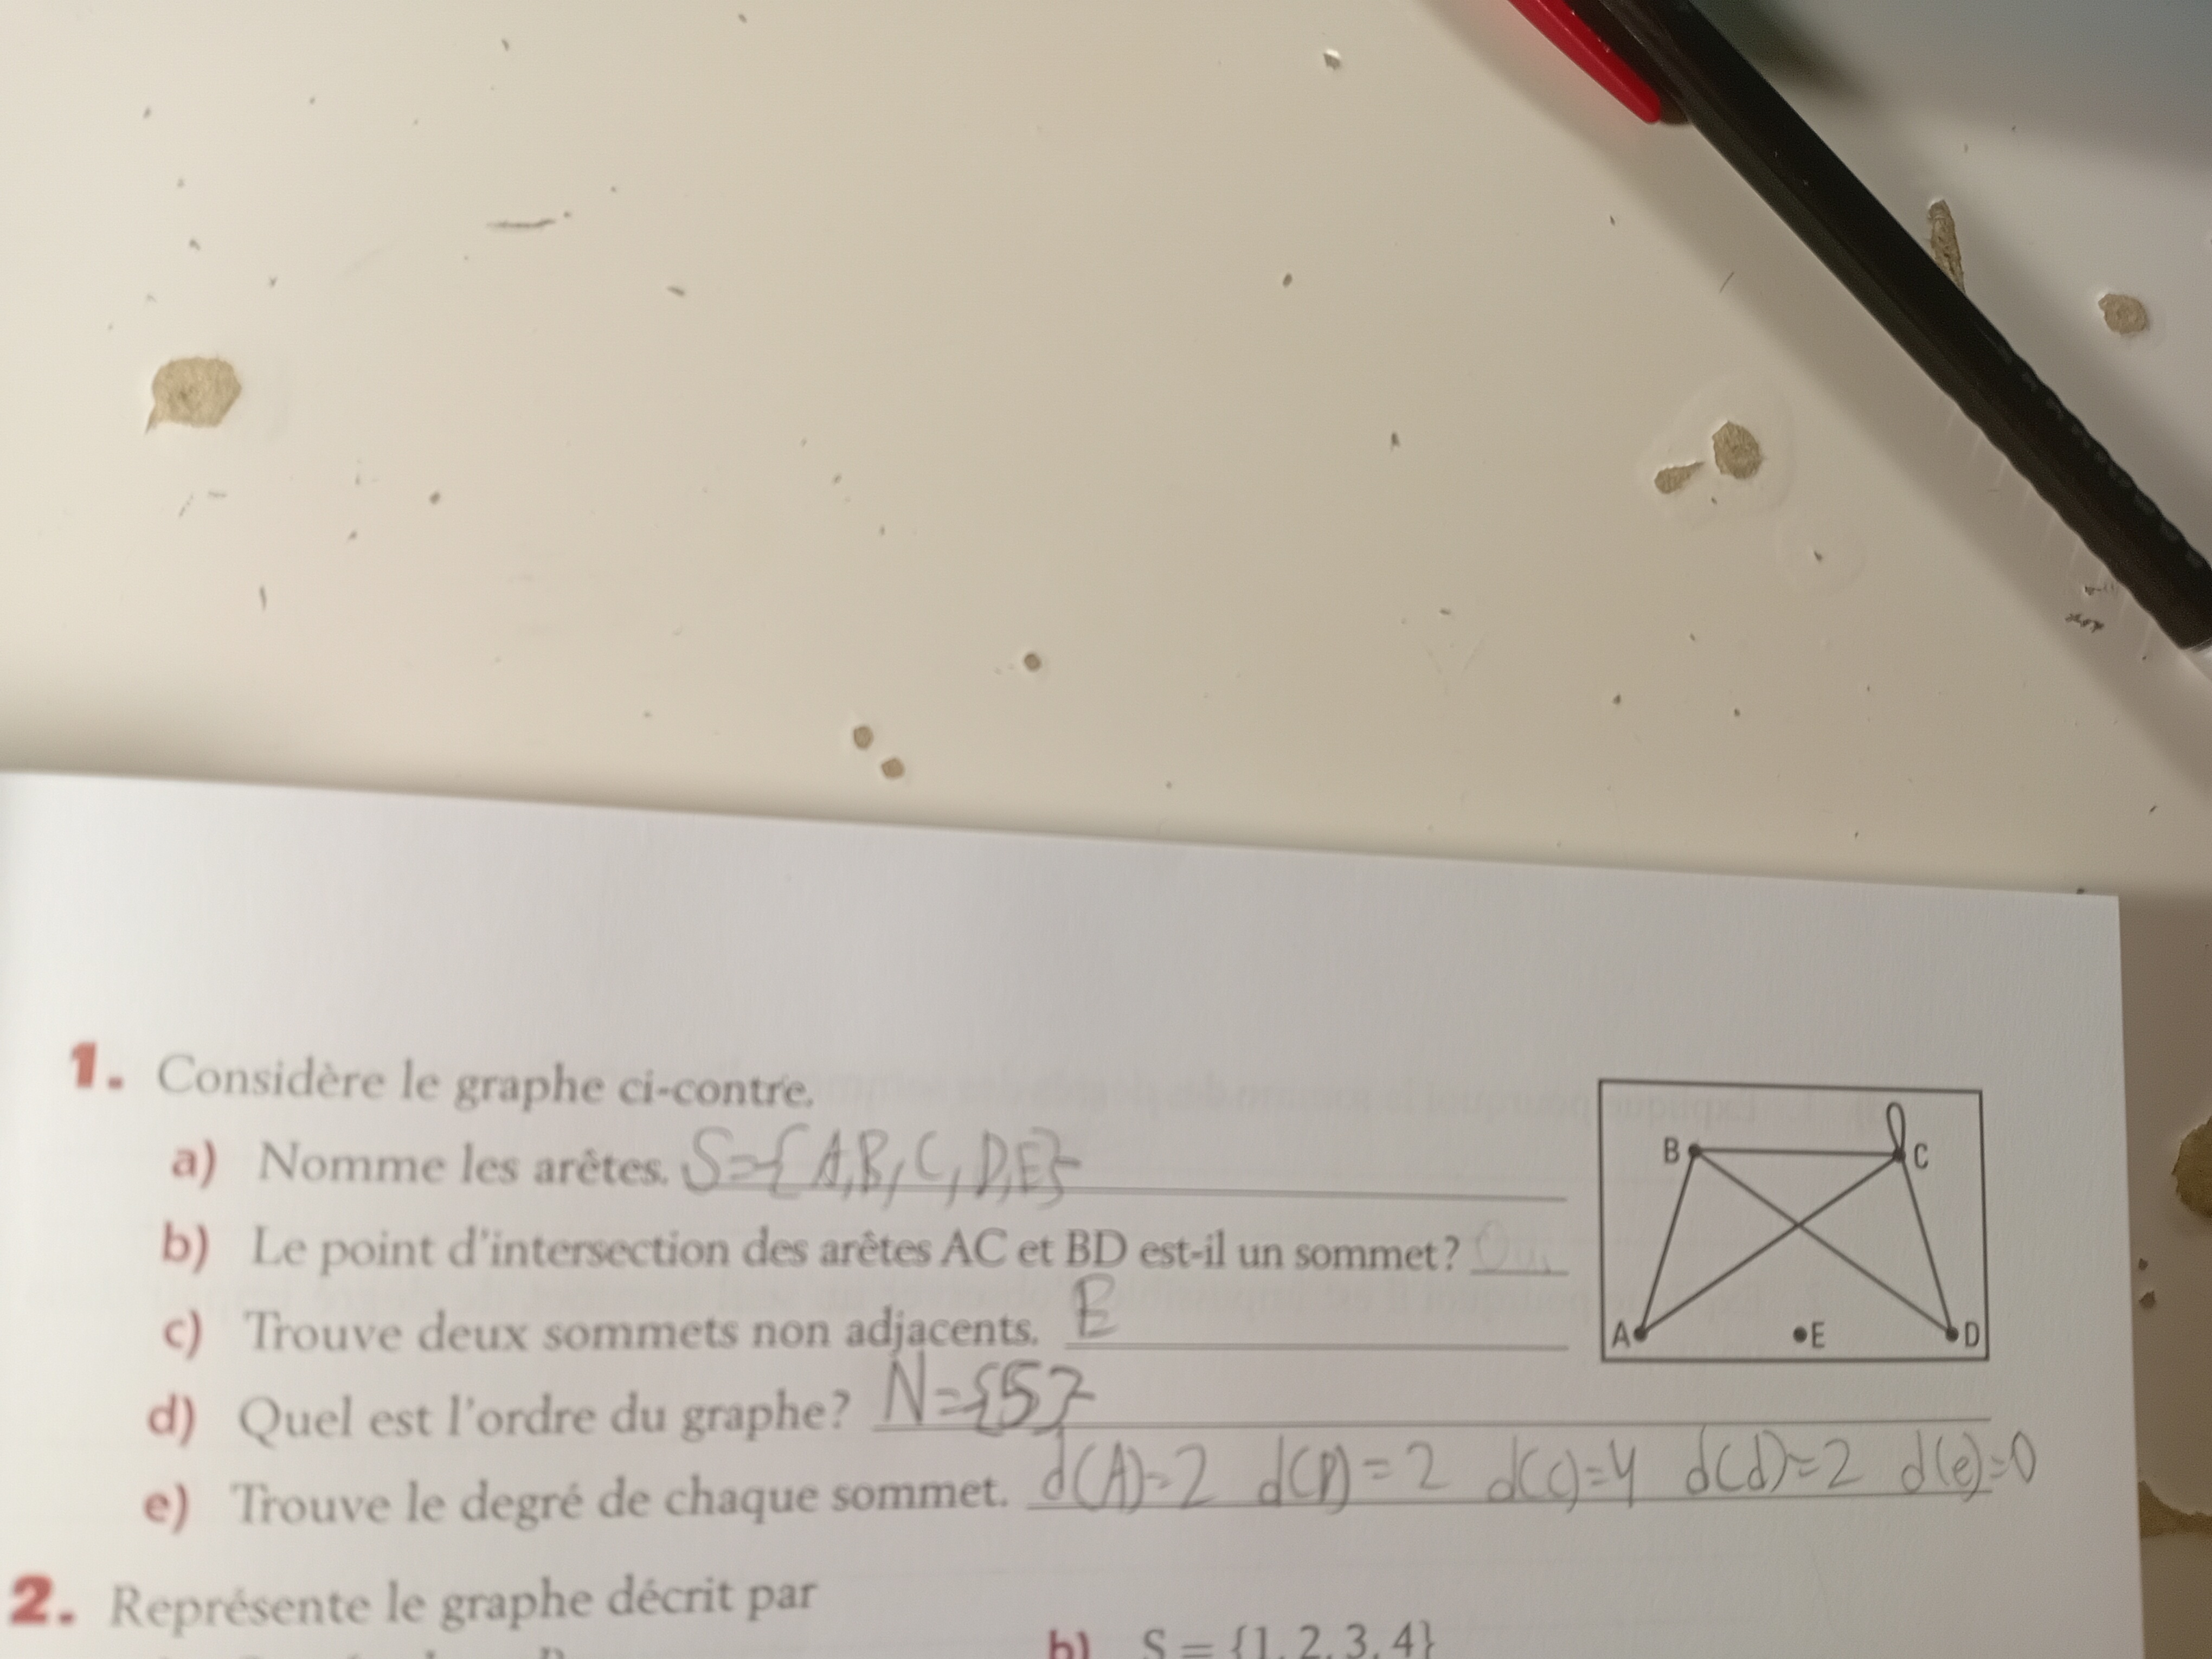 1. Considère le graphe ci-contre.
a) Nomme les arêtes. S={A,B,C,D,E}
b) Le point d'intersection des arêtes AC et BD est-il un sommet? Oui
c) Trouve deux sommets non adjacents. E
d) Quel est l'ordre du graphe? N={5}
e) Trouve le degré de chaque sommet. d(A)=2 d(B)=2 d(C)=4 d(d)=2 d(e)=0
B C
A E D
2. Représente le graphe décrit par
b) S = {1, 2, 3, 4}